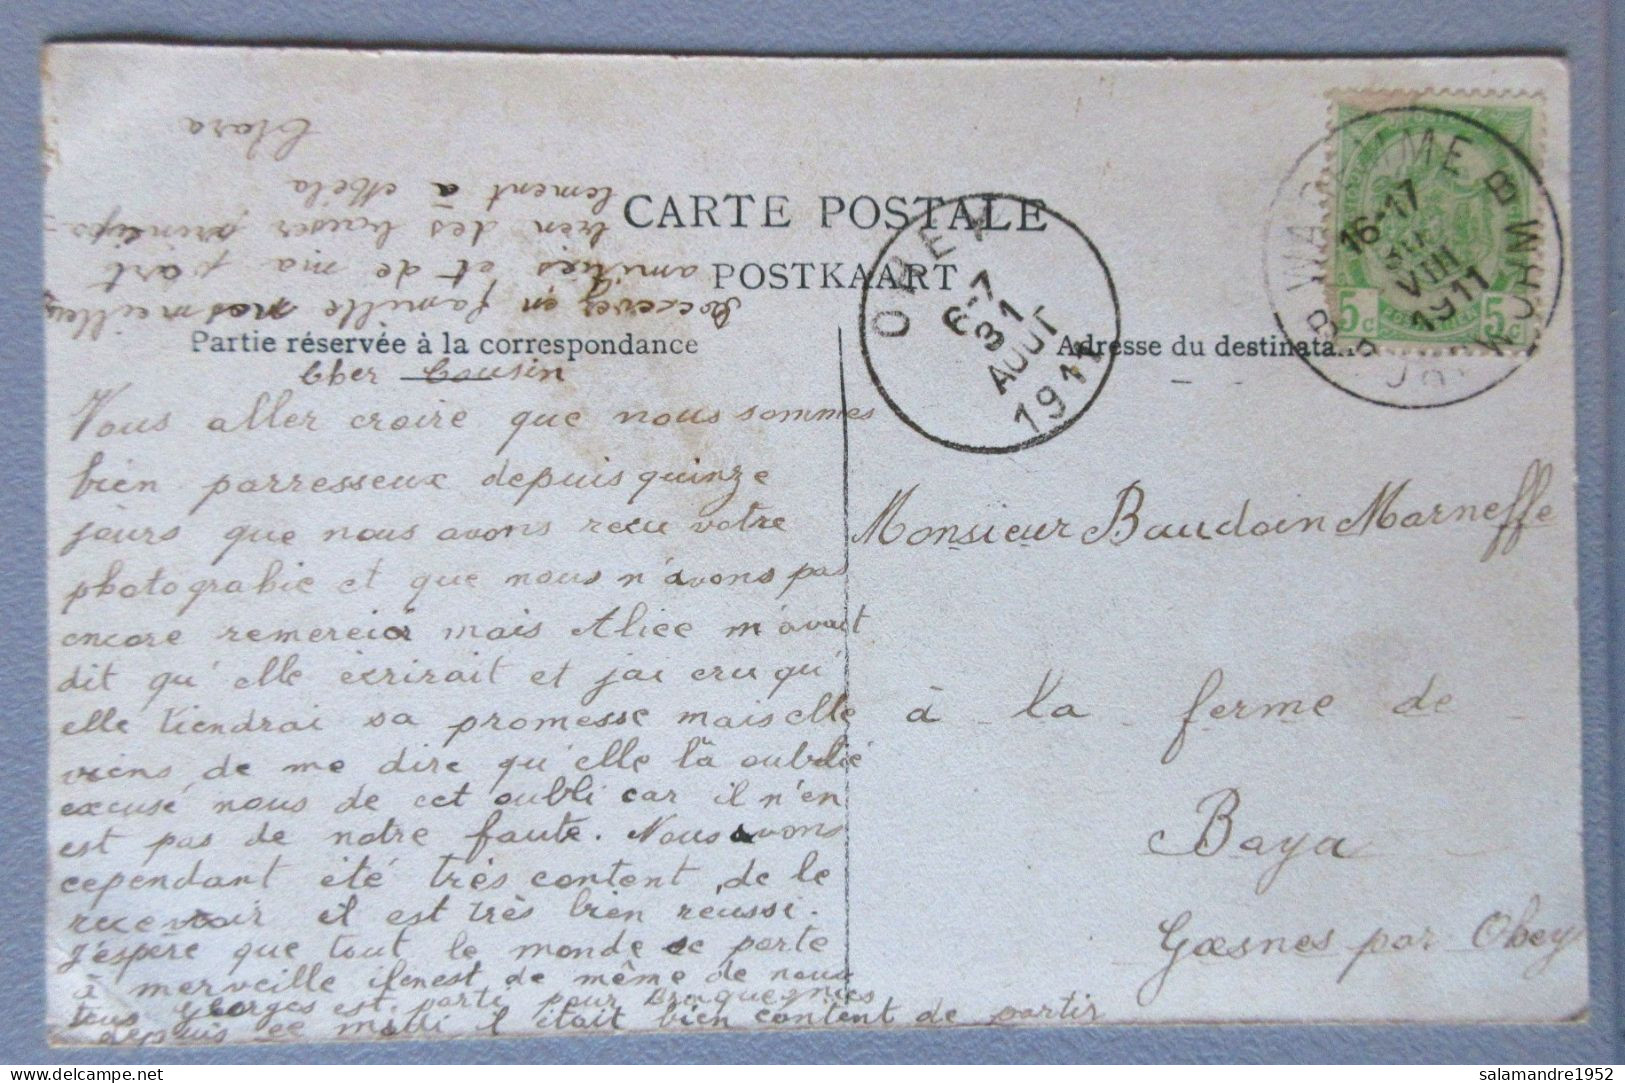 CARTE POSTALE
POSTKAART
Partie réservée à la correspondance
Adresse du destinata
Cher Cousin
Vous aller croire que nous sommes
bien parresseux depuis quinze
jours que nous avons recu votre
photograhie et que nous n'avons pas
encore remercier mais Alice m'avait
dit qu'elle écrirait et jai cru qu'
elle tiendrai sa promesse mais elle
viens de me dire qu'elle la oublié
excusé nous de cet oubli car il n'en
est pas de notre faute. Nous avons
cependant été très content de le
recevoir il est très bien réussi.
J'espère que tout le monde se porte
à merveille il en est de même de nous
tous Georges est parti pour Braquegnies
depuis ce midi il était bien content de partir
Recevez en famille nos meilleurs
amitiés et de ma part
bien des baiser principa-
lement à Méla
Clara
Monsieur Baudoin Marneffe
à la ferme de
Baya
Goesnes par Ohey
OHEY
6-7
31
AOUT
1911
WAREMME
BORGWORM
16-17
VIII
1911
5c 5c
salamandre1952